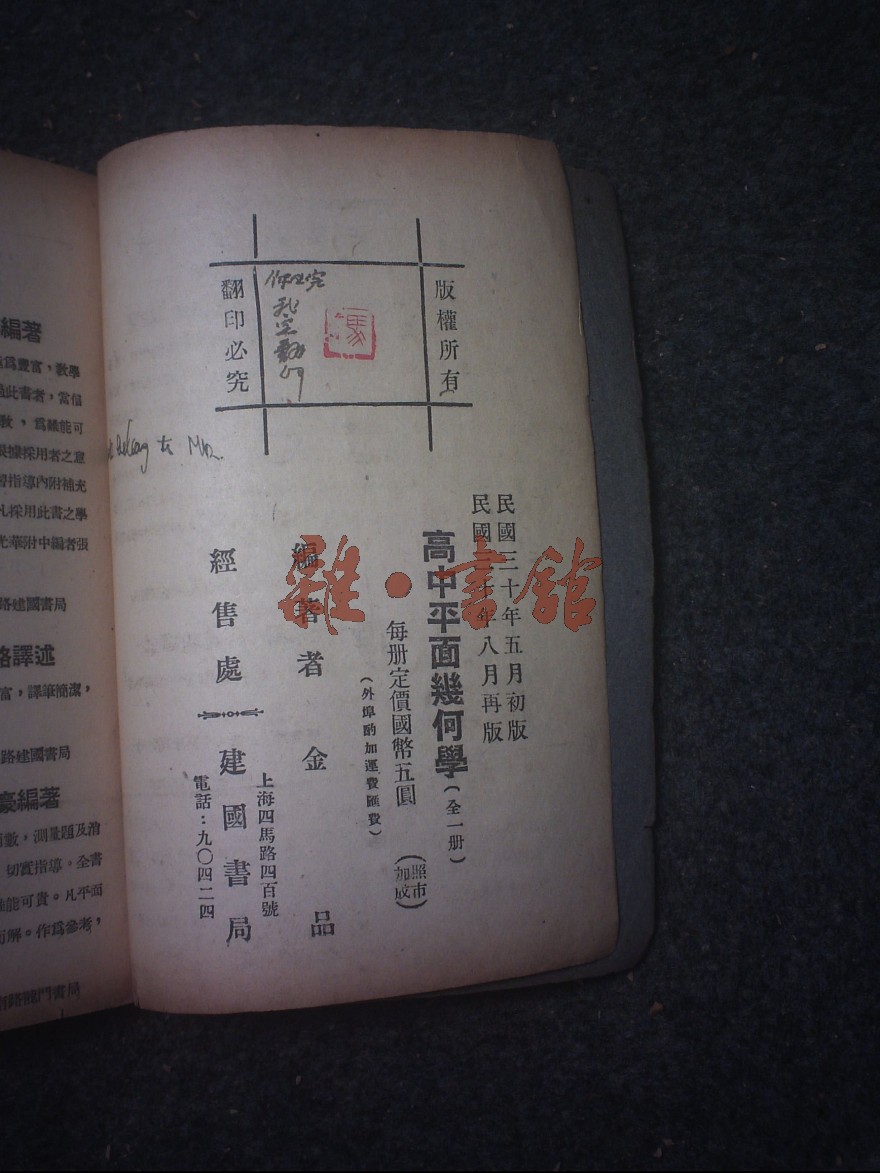 版權所有
翻印必究
民國三十年五月初版
民國三十年八月再版
高中平面幾何學(全一册)
每册定價國幣五圓(照市加成)
(外埠酌加運費匯費)
編著者 金品
經售處 建國書局
上海四馬路四百號
電話:九〇四二四
雜·書館
編著
爲豐富,教學
此書者,當倍
教,爲雖能可
據採用者之意
習指導內附補充
凡採用此書之學
光華附中編者張
路建國書局
略譯述
富,譯筆簡潔,
路建國書局
編著
切實指導。全書
能可貴。凡平面
而解。作爲參考,
路龍門書局